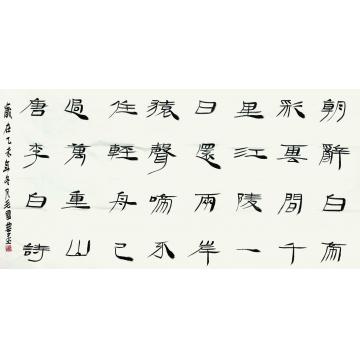 朝辭白帝
彩雲間千
里江陵一
日還兩岸
猿聲啼不
住輕舟已
過萬重山
唐李白詩
歲在乙未年冬月